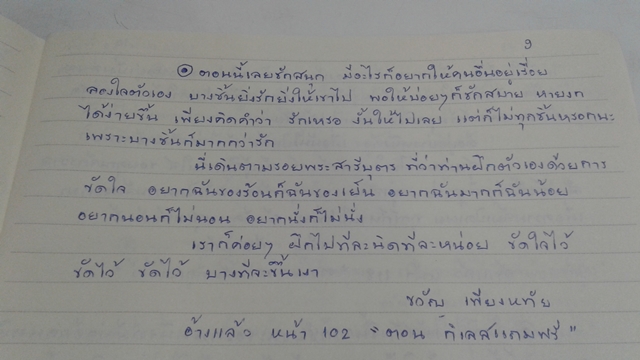 9
ตอนนี้เลยชักสนุก มีอะไรก็อยากให้คนอื่นอยู่เรื่อย
ลองใจตัวเอง บางชิ้นยิ่งรักยิ่งให้เขาไป พอให้บ่อยๆก็ชักสบาย หายงก
ได้ง่ายขึ้น เพียงคิดคำว่า รักเหรอ งั้นให้ไปเลย แต่ก็ไม่ทุกชิ้นหรอกนะ
เพราะบางชิ้นก็มากกว่ารัก
นี่เดินตามรอยพระสารีบุตร ที่ว่าท่านฝึกตัวเองด้วยการ
ขัดใจ อยากฉันของร้อนก็ฉันของเย็น อยากฉันมากก็ฉันน้อย
อยากนอนก็ไม่นอน อยากนั่งก็ไม่นั่ง
เราก็ค่อยๆ ฝึกไปทีละนิดทีละหน่อย ขัดใจไว้
ขัดไว้ ขัดไว้ บางทีจะขึ้นเงา
ขวัญ เพียงหทัย
อ้างแล้ว หน้า 102 "ตอน กิเลสแถมฟรี"